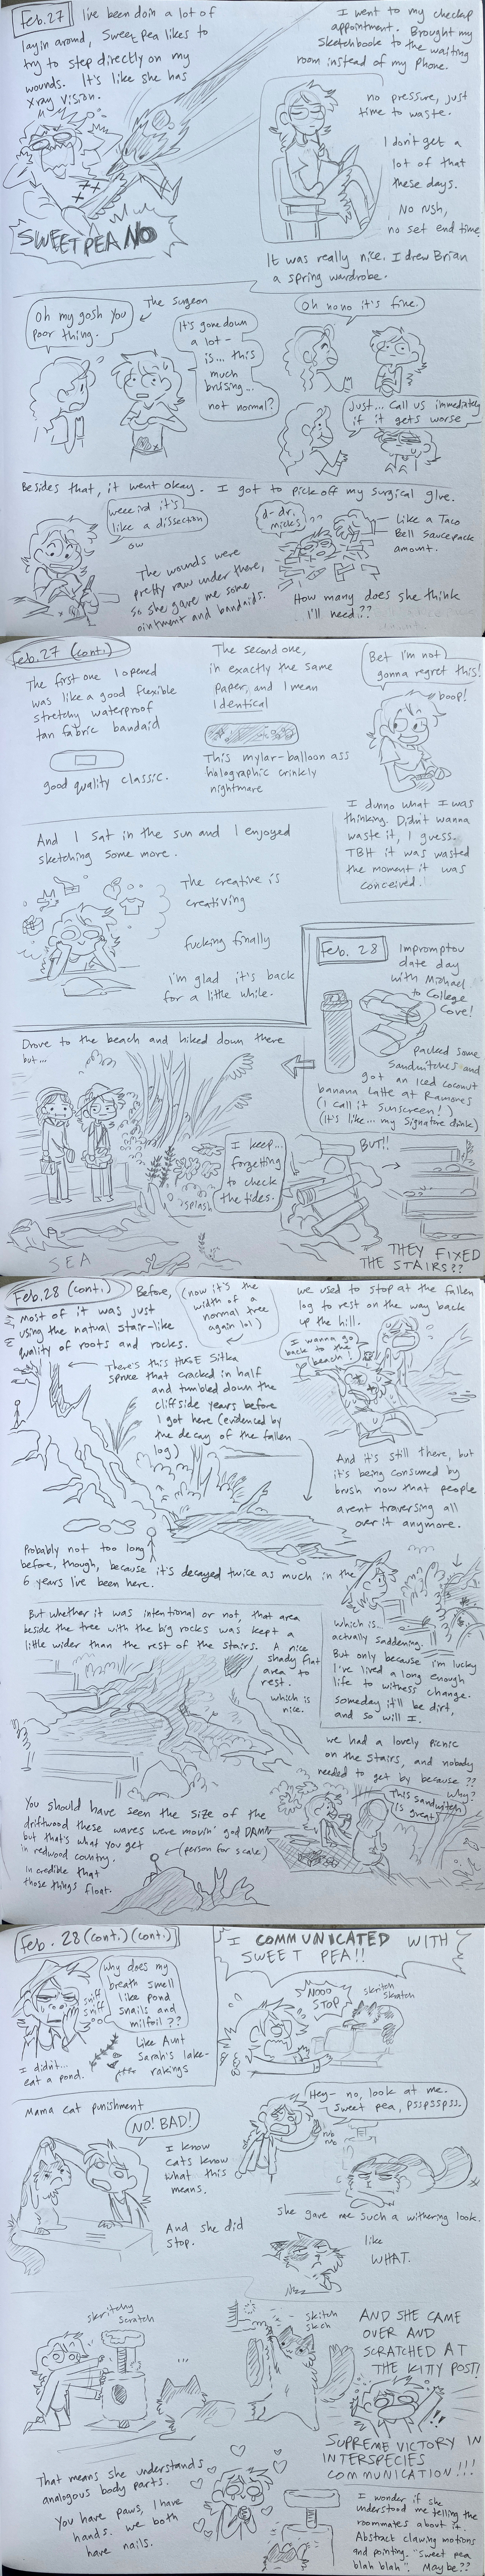 Feb. 27
I've been doin a lot of
layin around, Sweet Pea likes to
try to step directly on my
wounds. It's like she has
Xray Vision.
SWEET PEA NO
I went to my checkup
appointment. Brought my
Sketchbook to the waiting
room instead of my phone.
no pressure, just
time to waste.
I don't get a
lot of that
these days.
No rush,
no set end time.
It was really nice. I drew Brian
a spring wardrobe.
Oh my gosh you
poor thing.
The Surgeon
It's gone down
a lot -
is... this
much
bruising...
not normal?
Oh no no it's fine.
Just... call us immediately
if it gets worse
Besides that, it went okay. I got to pick off my surgical glue.
weeeird it's
like a dissection
ow
The wounds were
pretty raw under there,
so she gave me some
ointment and bandaids.
d- dr.
micks??
Like a Taco
Bell saucepack
amount.
How many does she think
I'll need??
Feb. 27 (cont.)
The first one I opened
was like a good flexible
stretchy waterproof
tan fabric bandaid
good quality classic.
The second one,
in exactly the same
paper, and I mean
Identical
This mylar-balloon ass
holographic crinkly
nightmare
Bet I'm not
gonna regret this!
boop!
I dunno what I was
thinking. Didn't wanna
waste it, I guess.
TBH it was wasted
the moment it was
conceived.
And I sat in the sun and I enjoyed
sketching some more.
The creative is
creativing
fucking finally
I'm glad it's back
for a little while.
Feb. 28
Impromptu
date day
with Michael
to College
Cove!
packed some
Sandwitches and
got an Iced coconut
banana Latte at Ramones
(I call it sunscreen!)
(It's like... my Signature drink)
Drove to the beach and hiked down there
but...
I keep...
forgetting
to check
the tides.
splash
SEA
BUT!!
THEY FIXED
THE STAIRS??
Feb. 28 (cont.)
Before,
most of it was just
using the natural stair-like
quality of roots and rocks.
(now it's the
width of a
normal tree
again lol)
There's this HUGE Sitka
spruce that cracked in half
and tumbled down the
cliffside years before
I got here (evidenced by
the decay of the fallen
log)
we used to stop at the fallen
log to rest on the way back
up the hill.
I wanna go
back to the
beach!
And it's still there, but
it's being consumed by
brush now that people
arent traversing all
over it anymore.
Probably not too long
before, though, because it's decayed twice as much in the
6 years I've been here.
But whether it was intentional or not, that area
beside the tree with the big rocks was kept a
little wider than the rest of the stairs. A nice
shady flat
area to
rest.
which is
nice.
which is...
actually saddening.
But only because I'm lucky
I've lived a long enough
life to witness change.
someday it'll be dirt,
and so will I.
we had a lovely picnic
on the stairs, and nobody
needed to get by because??
why?
This sandwitch
is great
You should have seen the size of the
driftwood these waves were movin' god DAMN
but that's what you get
in redwood country.
Incredible that
those things float.
(person for scale)
Feb. 28 (cont.) (cont.)
Why does my
breath smell
like pond
snails and
milfoil??
sniff
sniff
I didn't...
eat a pond.
Like Aunt
Sarah's lake-
rakings
I COMMUNICATED WITH
SWEET PEA!!
NOOO
STOP
skritch
skratch
Mama cat punishment
NO! BAD!
I know
cats know
what this
means.
And she did
stop.
Hey- no, look at me.
Sweet pea, pspspspss.
She gave me such a withering look.
like
WHAT.
skritchy
scratch
skitch
skich
AND SHE CAME
OVER AND
SCRATCHED AT
THE KITTY POST!
SUPREME VICTORY IN
INTERSPECIES
COMMUNICATION!!!
That means she understands
analogous body parts.
You have paws, I have
hands. we both
have nails.
I wonder if she
understood me telling the
roommates about it.
Abstract clawing motions
and pointing. "Sweet pea
blah blah". Maybe??